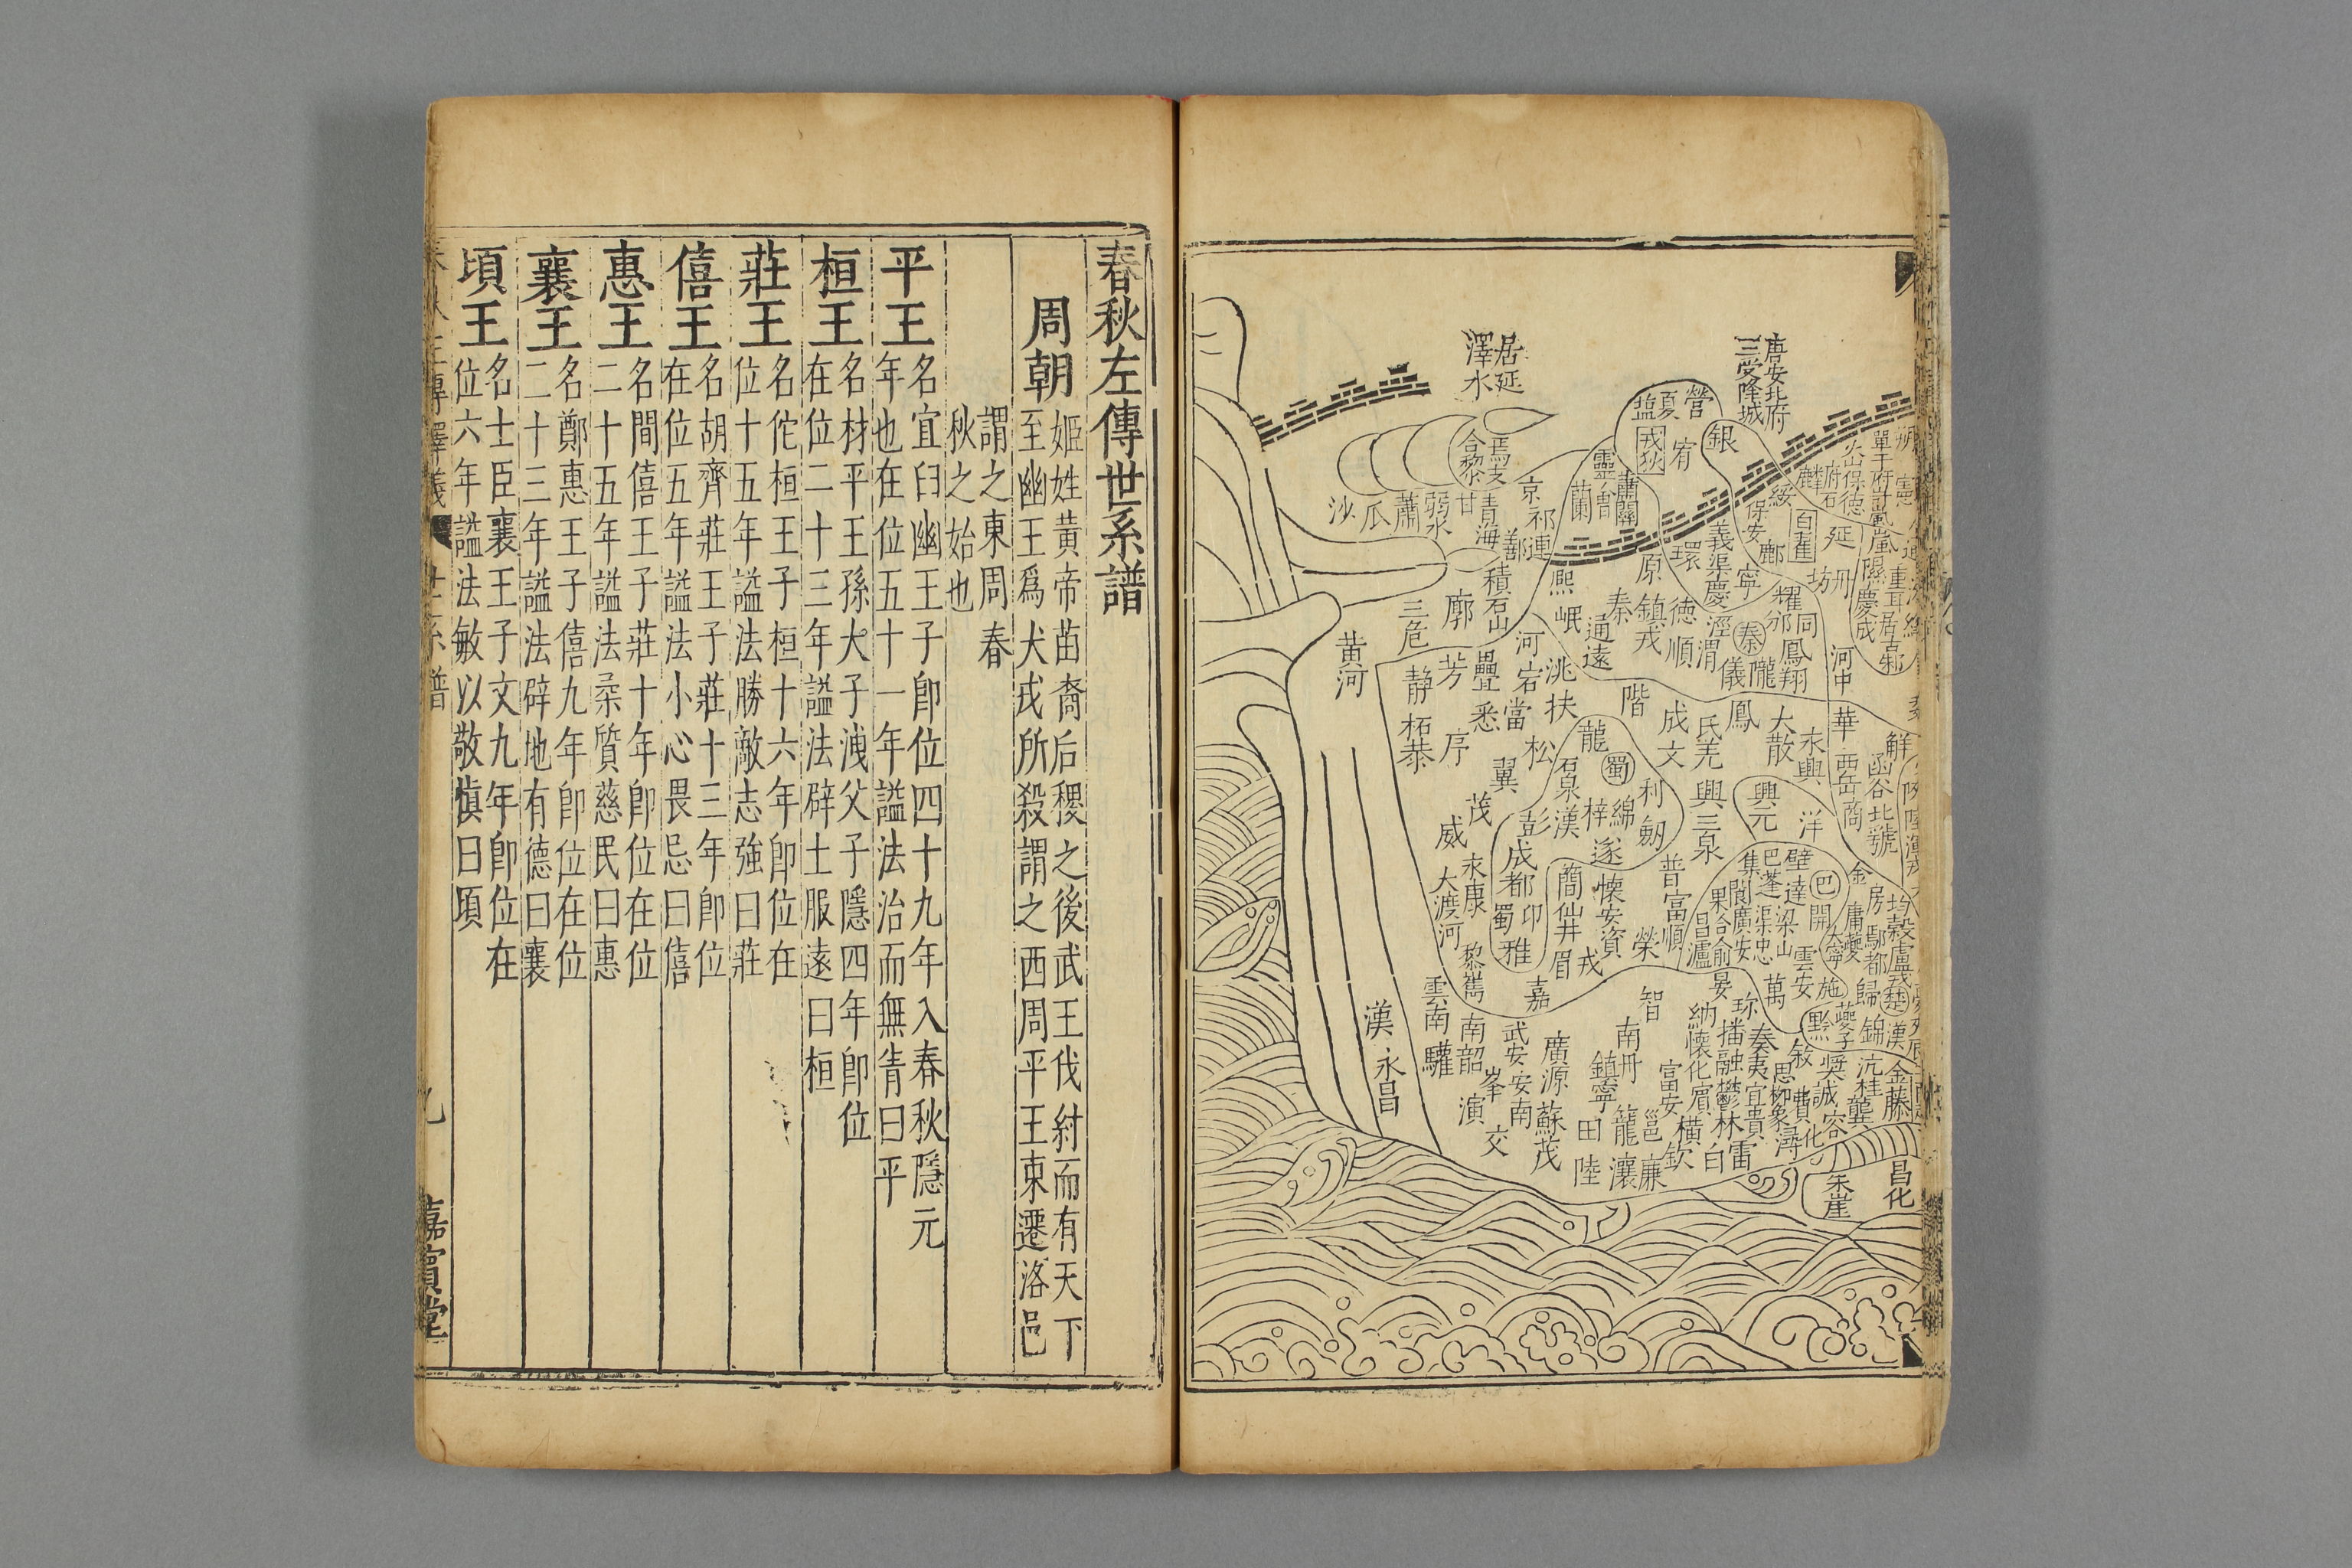 唐安北府
三受降城
居延
澤水
營
夏
鹽
宥
戎狄
銀
靈
蕭關
蘭
會
焉支
合黎
沙
瓜
肅
弱水
甘
青海
京
祁連
鄯
積石山
廓
三危
黃河
熙
岷
原
環
義渠
慶
寧
保安
綏
鄜
白翟
延
坊
丹
麟
府
石
火山
保德
單于府
嵐
隰
慶成
重耳居
耀
邠
同
鳳翔
隴
儀
秦
涇
渭
德順
鎮戎
秦
通遠
河中
靜
芳
疊
宕
河
洮
柘
恭
悉
當
扶
階
成
文
氐羌
鳳
大散
華
西岳
商
解
函谷
北虢
序
翼
松
龍
蜀
石泉
漢
梓
綿
利
劍
遂
彭
成都
蜀
卬
雅
茂
威
永康
大渡河
黎
嶲
簡
仙井
眉
懷安
資
戎
榮
普
富順
興
三泉
興元
洋
集
巴
蓬
壁
達
巴
開
渠
梁山
忠
閬
廣安
果
合
渝
昌
瀘
金
房
均
穀
庸
夔
大寧
鄢都
盧戎
雲安
萬
施
歸
楚
黔
夔子
錦
漢
嘉
雲南
南韶
驩
漢
永昌
武安
安南
峯
演
交
廣源
蘇茂
智
南丹
鎮寧
田
籠
邕
陸
瀼
廉
欽
富安
橫
白
雷
納
懷化
賓
珍
播
融
鬱林
奏
夷
宜
貴
思
柳
象
潯
敘
獎
誠
費
容
化
沅
桂
龔
金
藤
朱崖
昌化
春秋左傳世系譜
周朝
姬姓黃帝苗裔后稷之後武王伐紂而有天下
至幽王爲犬戎所殺謂之西周平王東遷洛邑
謂之東周春
秋之始也
平王
名宜臼幽王子卽位四十九年入春秋隱元
年也在位五十一年謚法治而無眚曰平
桓王
名材平王孫大子洩父子隱四年卽位
在位二十三年謚法辟土服遠曰桓
莊王
名佗桓王子桓十六年卽位在
位十五年謚法勝敵志強曰莊
僖王
名胡齊莊王子莊十三年卽位
在位五年謚法小心畏忌曰僖
惠王
名間僖王子莊十年卽位在位
二十五年謚法柔質慈民曰惠
襄王
名鄭惠王子僖九年卽位在位
二十三年謚法辟地有德曰襄
頃王
名士臣襄王子文九年卽位在
位六年謚法敏以敬慎曰頃
世系譜
九
嘉賓堂